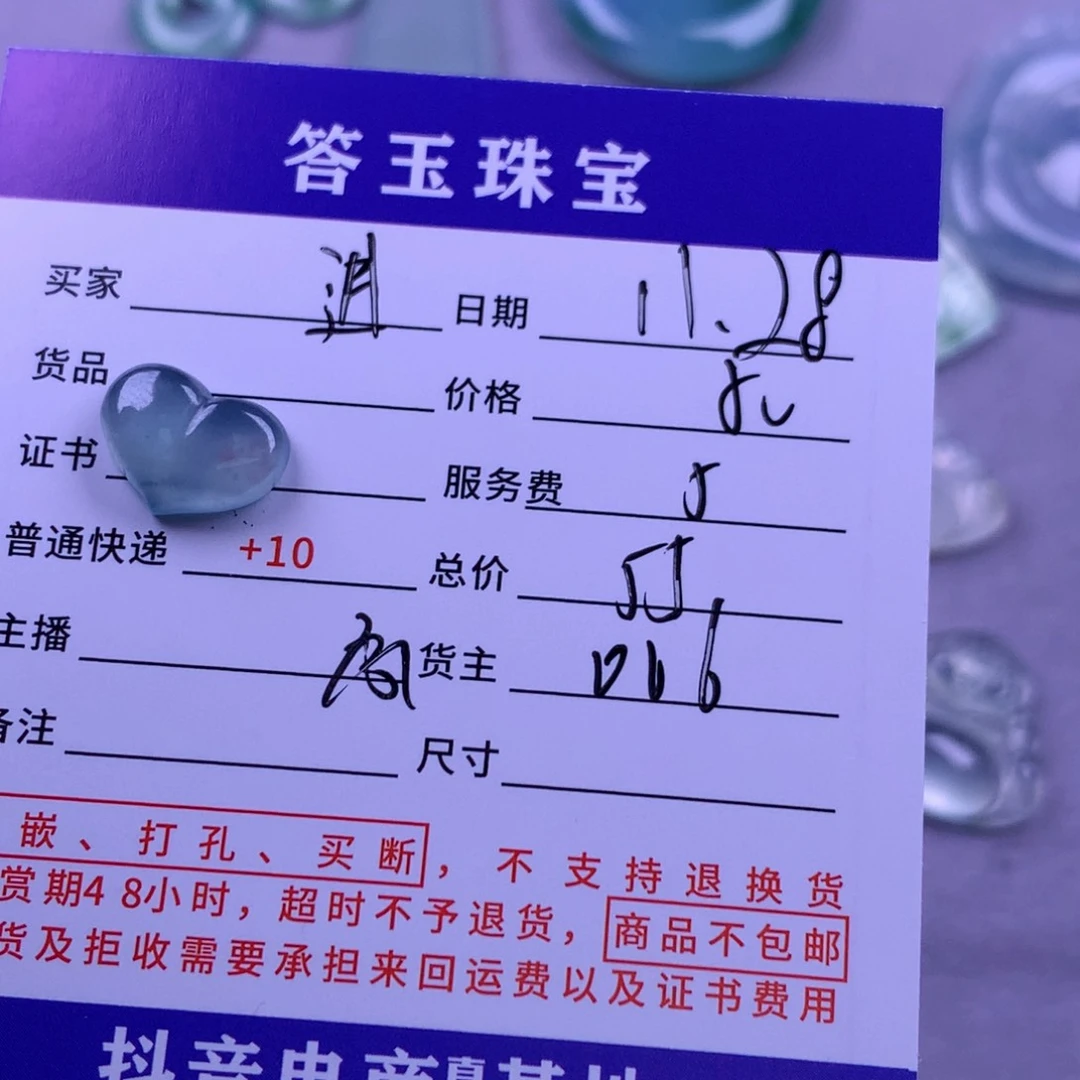 答玉珠宝
买家 日期 11.28
货品 价格
证书 服务费 5
普通快递 +10 总价 55
主播 货主
备注 尺寸
嵌、打孔、买断，不支持退换货
赏期48小时，超时不予退货，商品不包邮
货及拒收需要承担来回运费以及证书费用
抖音电商